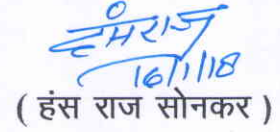 हंसराज
16/1/18
( हंस राज सोनकर )